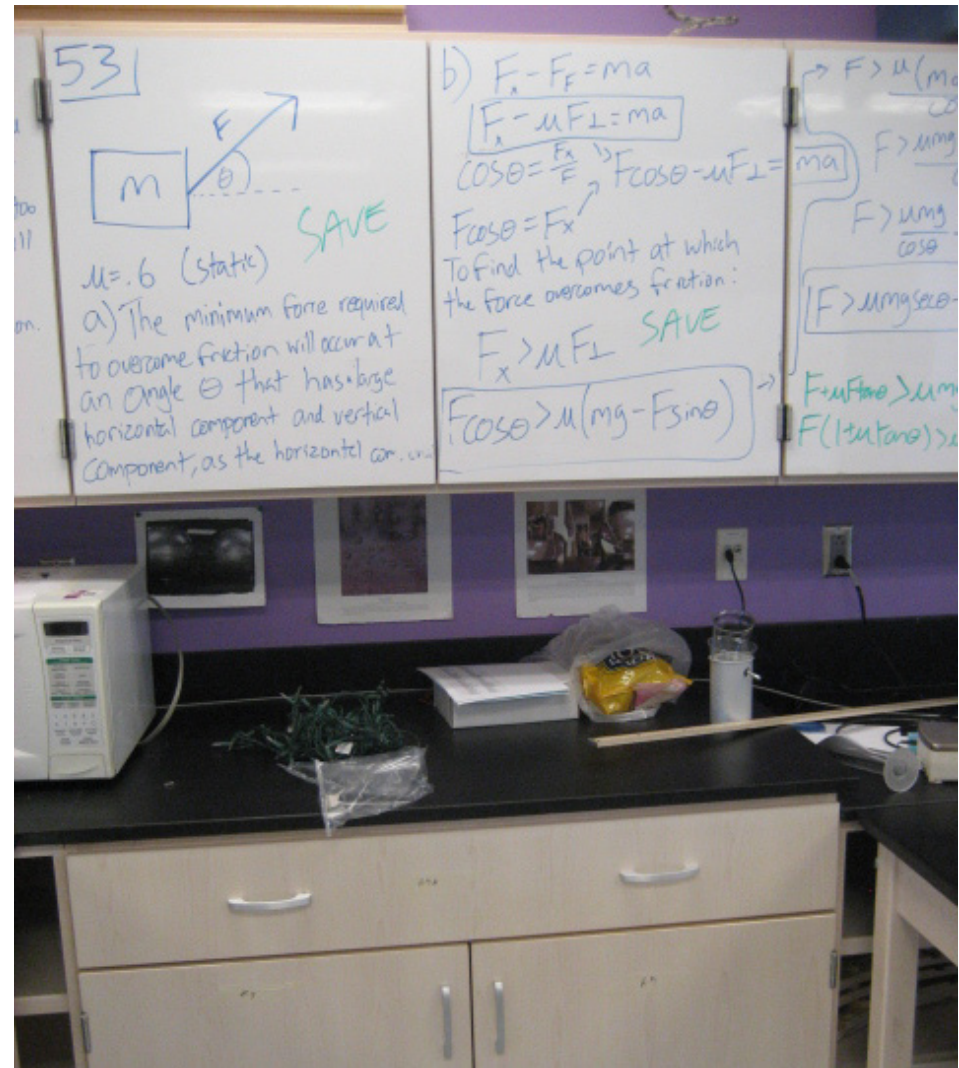 531
F
m
θ
SAVE
μ=.6 (static)
a) The minimum force required
to overcome friction will occur at
an angle θ that has a large
horizontal component and vertical
component, as the horizontal com.
b) Fx - FF = ma
Fx - μF⊥ = ma
cosθ = Fx/F Fcosθ - μF⊥ = ma
Fcosθ = Fx
To find the point at which
the force overcomes friction:
SAVE
Fx > μF⊥
Fcosθ > μ(mg - Fsinθ)
F > μ(m
F > μmg
F > μmg
cosθ
F > μmgsecθ -
F + μFtanθ > μmg
F(1+μtanθ) >
too
on.